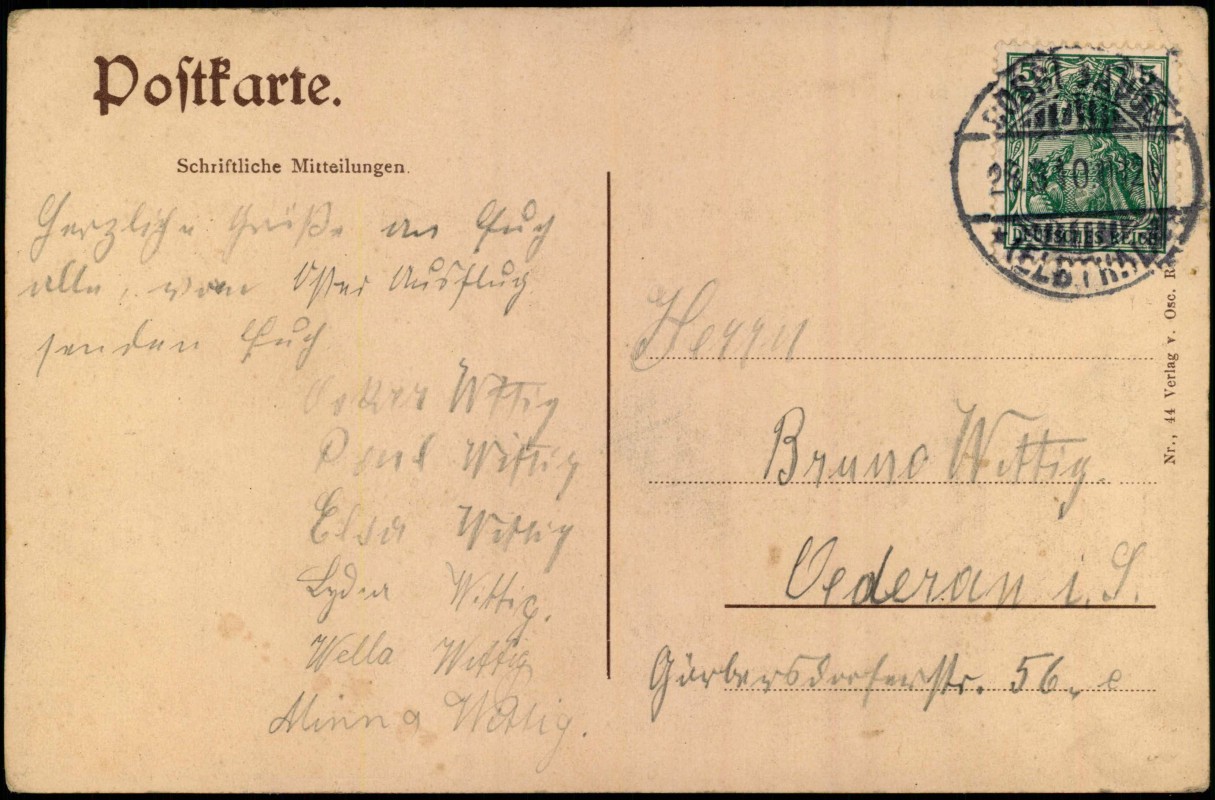 Postkarte.
Schriftliche Mitteilungen.
Herzliche Grüße an Euch
alle, vom Oster Ausflug
senden Euch
Oskar Wittig
Paul Wittig
Elsa Wittig
Lydia Wittig.
Wella Wittig
Minna Wittig.
5 5
DEUTSCHES REICH
(ELBTHAL)
Herrn
Bruno Wittig.
Oederan i. S.
Görbersdorferstr. 56. c
Nr., 44 Verlag v. Osc.